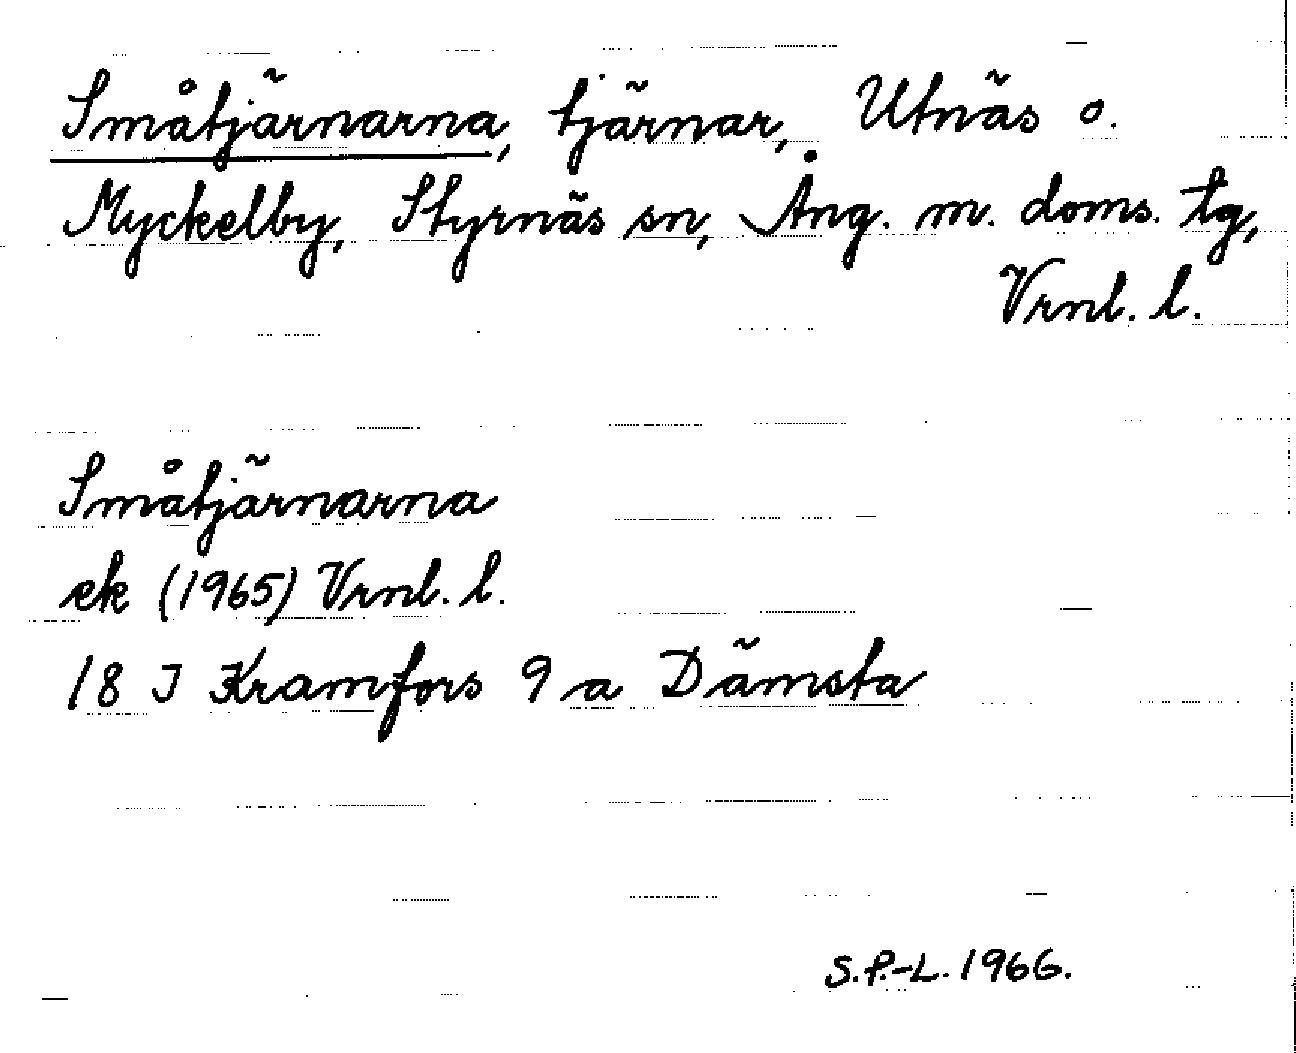 Småtjärnarna, tjärnar, Utnäs o.
Myckelby, Styrnäs sn, Ång. m. doms. tg,
Vrnl. l.
Småtjärnarna
ek (1965) Vrnl. l.
18 J Kramfors 9 a Dämsta
S.P.-L. 1966.